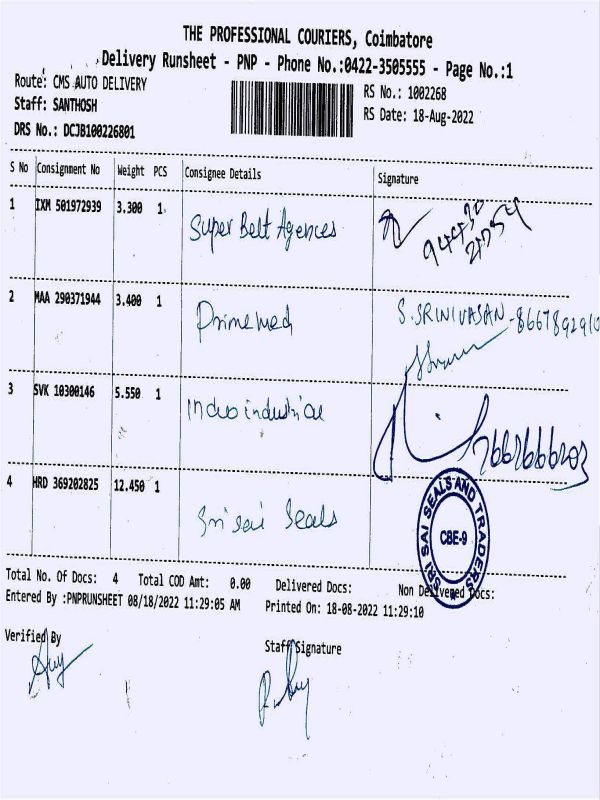 THE PROFESSIONAL COURIERS, Coimbatore
Delivery Runsheet - PNP - Phone No.:0422-3505555 - Page No.:1
Route: CMS AUTO DELIVERY
RS No.: 1002268
Staff: SANTHOSH
RS Date: 18-Aug-2022
DRS No.: DCJB100226801
S No Consignment No Weight PCS Consignee Details Signature
1 IXM 501972939 3.300 1 Super Belt Agences
2 MAA 290371944 3.400 1 Primemed S. SRINIVASAN - 8667892910
3 SVK 10300146 5.550 1 Indo industrial
4 HRD 369202825 12.450 1 Sri sai Seals
SRI SAI SEALS AND TRADERS
CBE-9
Total No. Of Docs: 4 Total COD Amt: 0.00 Delivered Docs: Non Delivered Docs:
Entered By :PNPRUNSHEET 08/18/2022 11:29:05 AM Printed On: 18-08-2022 11:29:10
Verified By
Staff Signature